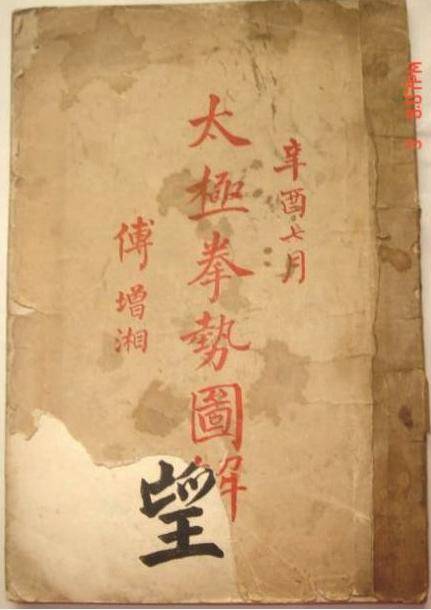 辛酉七月
太極拳勢圖解
傅增湘
望